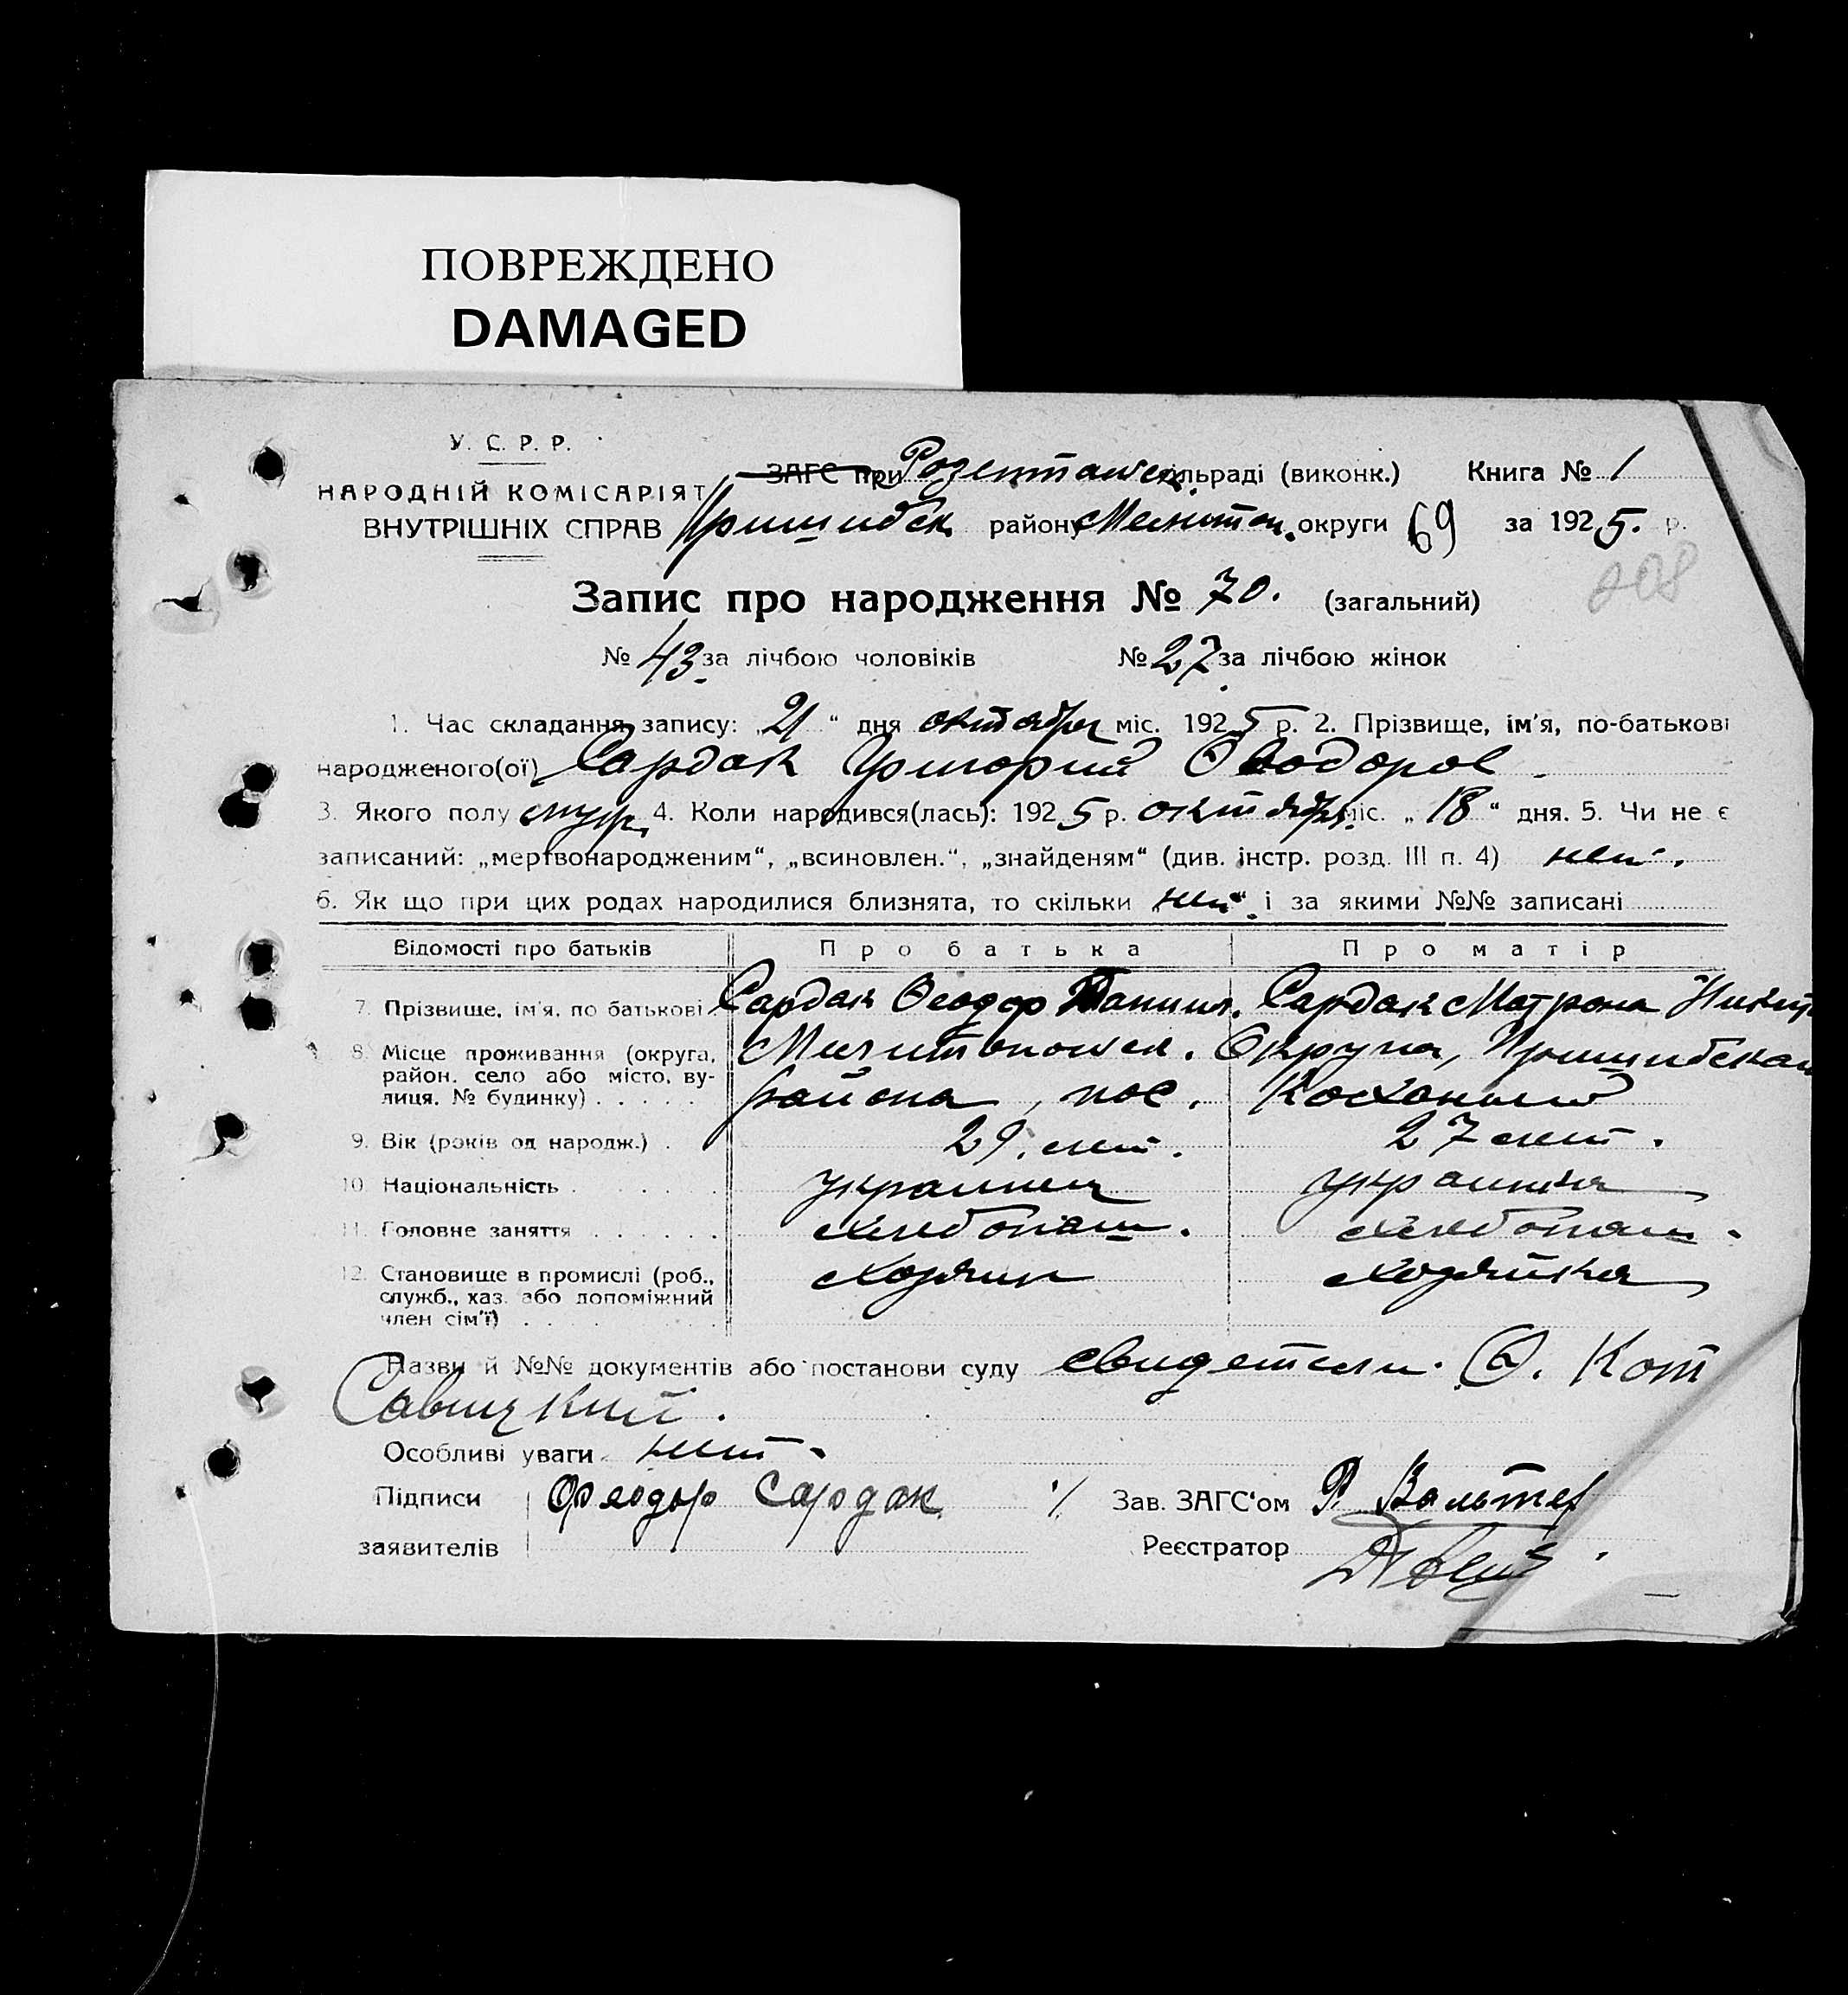 ПОВРЕЖДЕНО
DAMAGED
У. С. Р. Р.
НАРОДНІЙ КОМІСАРІЯТ
ВНУТРІШНІХ СПРАВ
ЗАГС при Розентальск. сільраді (виконк.) Книга № 1
Пришибск. району Мелитоп. округи 69 за 1925. р.
208
Запис про народження № 70. (загальний)
№ 43. за лічбою чоловіків № 27. за лічбою жінок
1. Час складання запису: „21“ дня октября міс. 1925 р. 2. Прізвище, ім'я, по-батькові
народженого(ої) Сардак Григорий Ѳеодоров.
3. Якого полу муж. 4. Коли народився(лась): 1925 р. октября міс. „18“ дня. 5. Чи не є
записаний: „мертвонародженим“, „всиновлен.“, „знайденям“ (див. інстр. розд. III п. 4) нет.
6. Як що при цих родах народилися близнята, то скільки „нет“ і за якими №№ записані
Відомості про батьків Про батька Про матір
7. Прізвище, ім'я, по батькові Сардак Ѳеодор Данил. Сардак Матрона Никит
8. Місце проживання (округа, район, село або місто, вулиця, № будинку) Мелитопольск. Округа, Пришибскаго
района, пос. Коханый
9. Вік (років од народж.) 29. лет. 27 лет.
10. Національність украинец украинка
11. Головне заняття хлебопаш. хлебопаш.
12. Становище в промислі (роб., служб., хаз. або допоміжний член сім'ї) хозяин хозяйка
Назви й №№ документів або постанови суду свидетели. Ѳ. Кот
Савицкий.
Особливі уваги нет.
Підписи Феодор Сардак Зав. ЗАГС'ом Р. Вальтер
заявителів Реєстратор